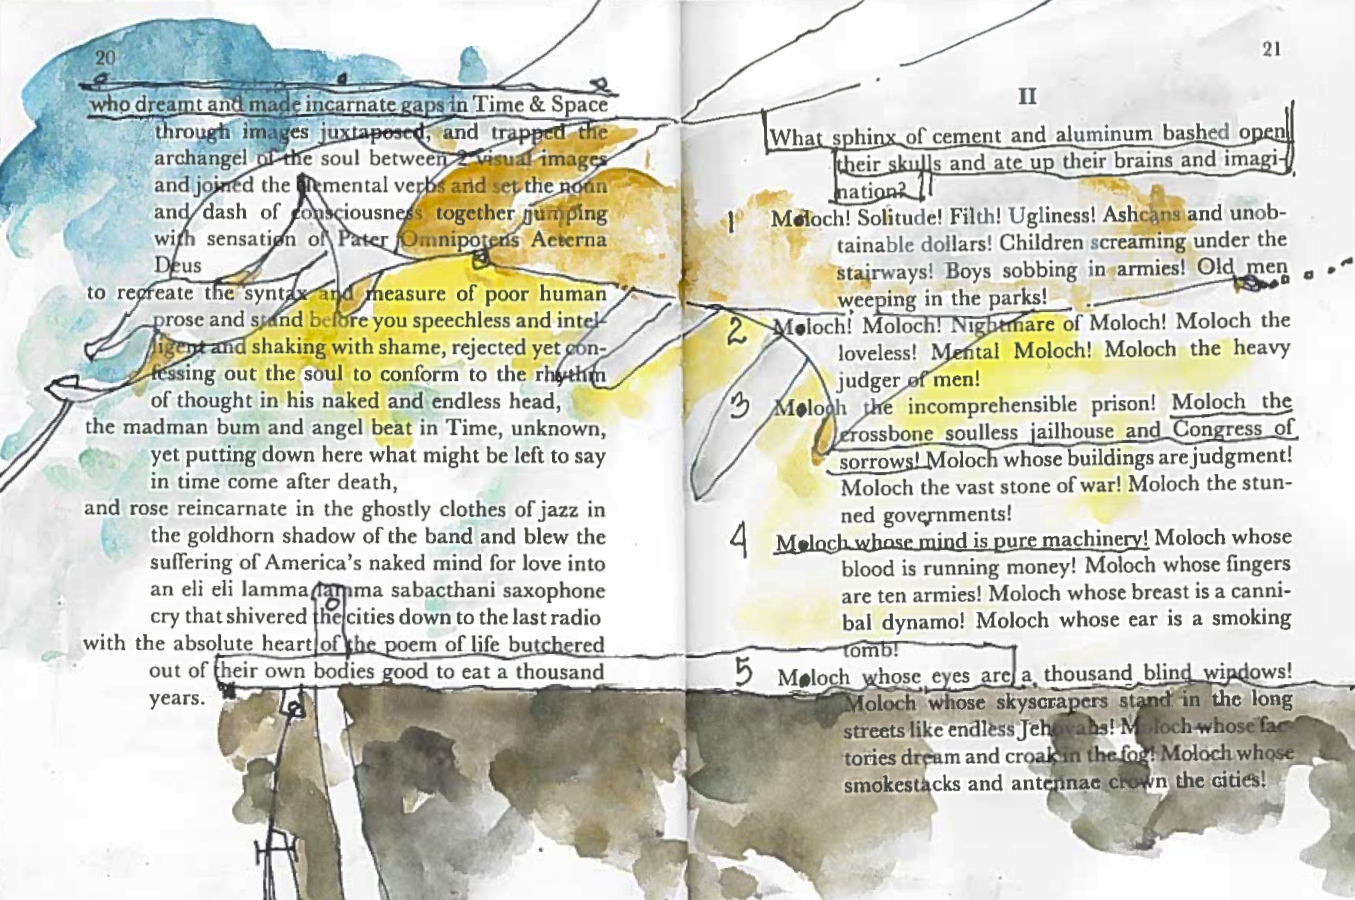 20
who dreamt and made incarnate gaps in Time & Space
through images juxtaposed, and trapped the
archangel of the soul between 2 visual images
and joined the elemental verbs and set the noun
and dash of consciousness together jumping
with sensation of Pater Omnipotens Aeterna
Deus
to recreate the syntax and measure of poor human
prose and stand before you speechless and intel-
ligent and shaking with shame, rejected yet con-
fessing out the soul to conform to the rhythm
of thought in his naked and endless head,
the madman bum and angel beat in Time, unknown,
yet putting down here what might be left to say
in time come after death,
and rose reincarnate in the ghostly clothes of jazz in
the goldhorn shadow of the band and blew the
suffering of America's naked mind for love into
an eli eli lamma lamma sabacthani saxophone
cry that shivered the cities down to the last radio
with the absolute heart of the poem of life butchered
out of their own bodies good to eat a thousand
years.
21
II
What sphinx of cement and aluminum bashed open
their skulls and ate up their brains and imagi-
nation?
1 Moloch! Solitude! Filth! Ugliness! Ashcans and unob-
tainable dollars! Children screaming under the
stairways! Boys sobbing in armies! Old men
weeping in the parks!
2 Moloch! Moloch! Nightmare of Moloch! Moloch the
loveless! Mental Moloch! Moloch the heavy
judger of men!
3 Moloch the incomprehensible prison! Moloch the
crossbone soulless jailhouse and Congress of
sorrows! Moloch whose buildings are judgment!
Moloch the vast stone of war! Moloch the stun-
ned governments!
4 Moloch whose mind is pure machinery! Moloch whose
blood is running money! Moloch whose fingers
are ten armies! Moloch whose breast is a canni-
bal dynamo! Moloch whose ear is a smoking
tomb!
5 Moloch whose eyes are a thousand blind windows!
Moloch whose skyscrapers stand in the long
streets like endless Jehovahs! Moloch whose fac-
tories dream and croak in the fog! Moloch whose
smokestacks and antennae crown the cities!